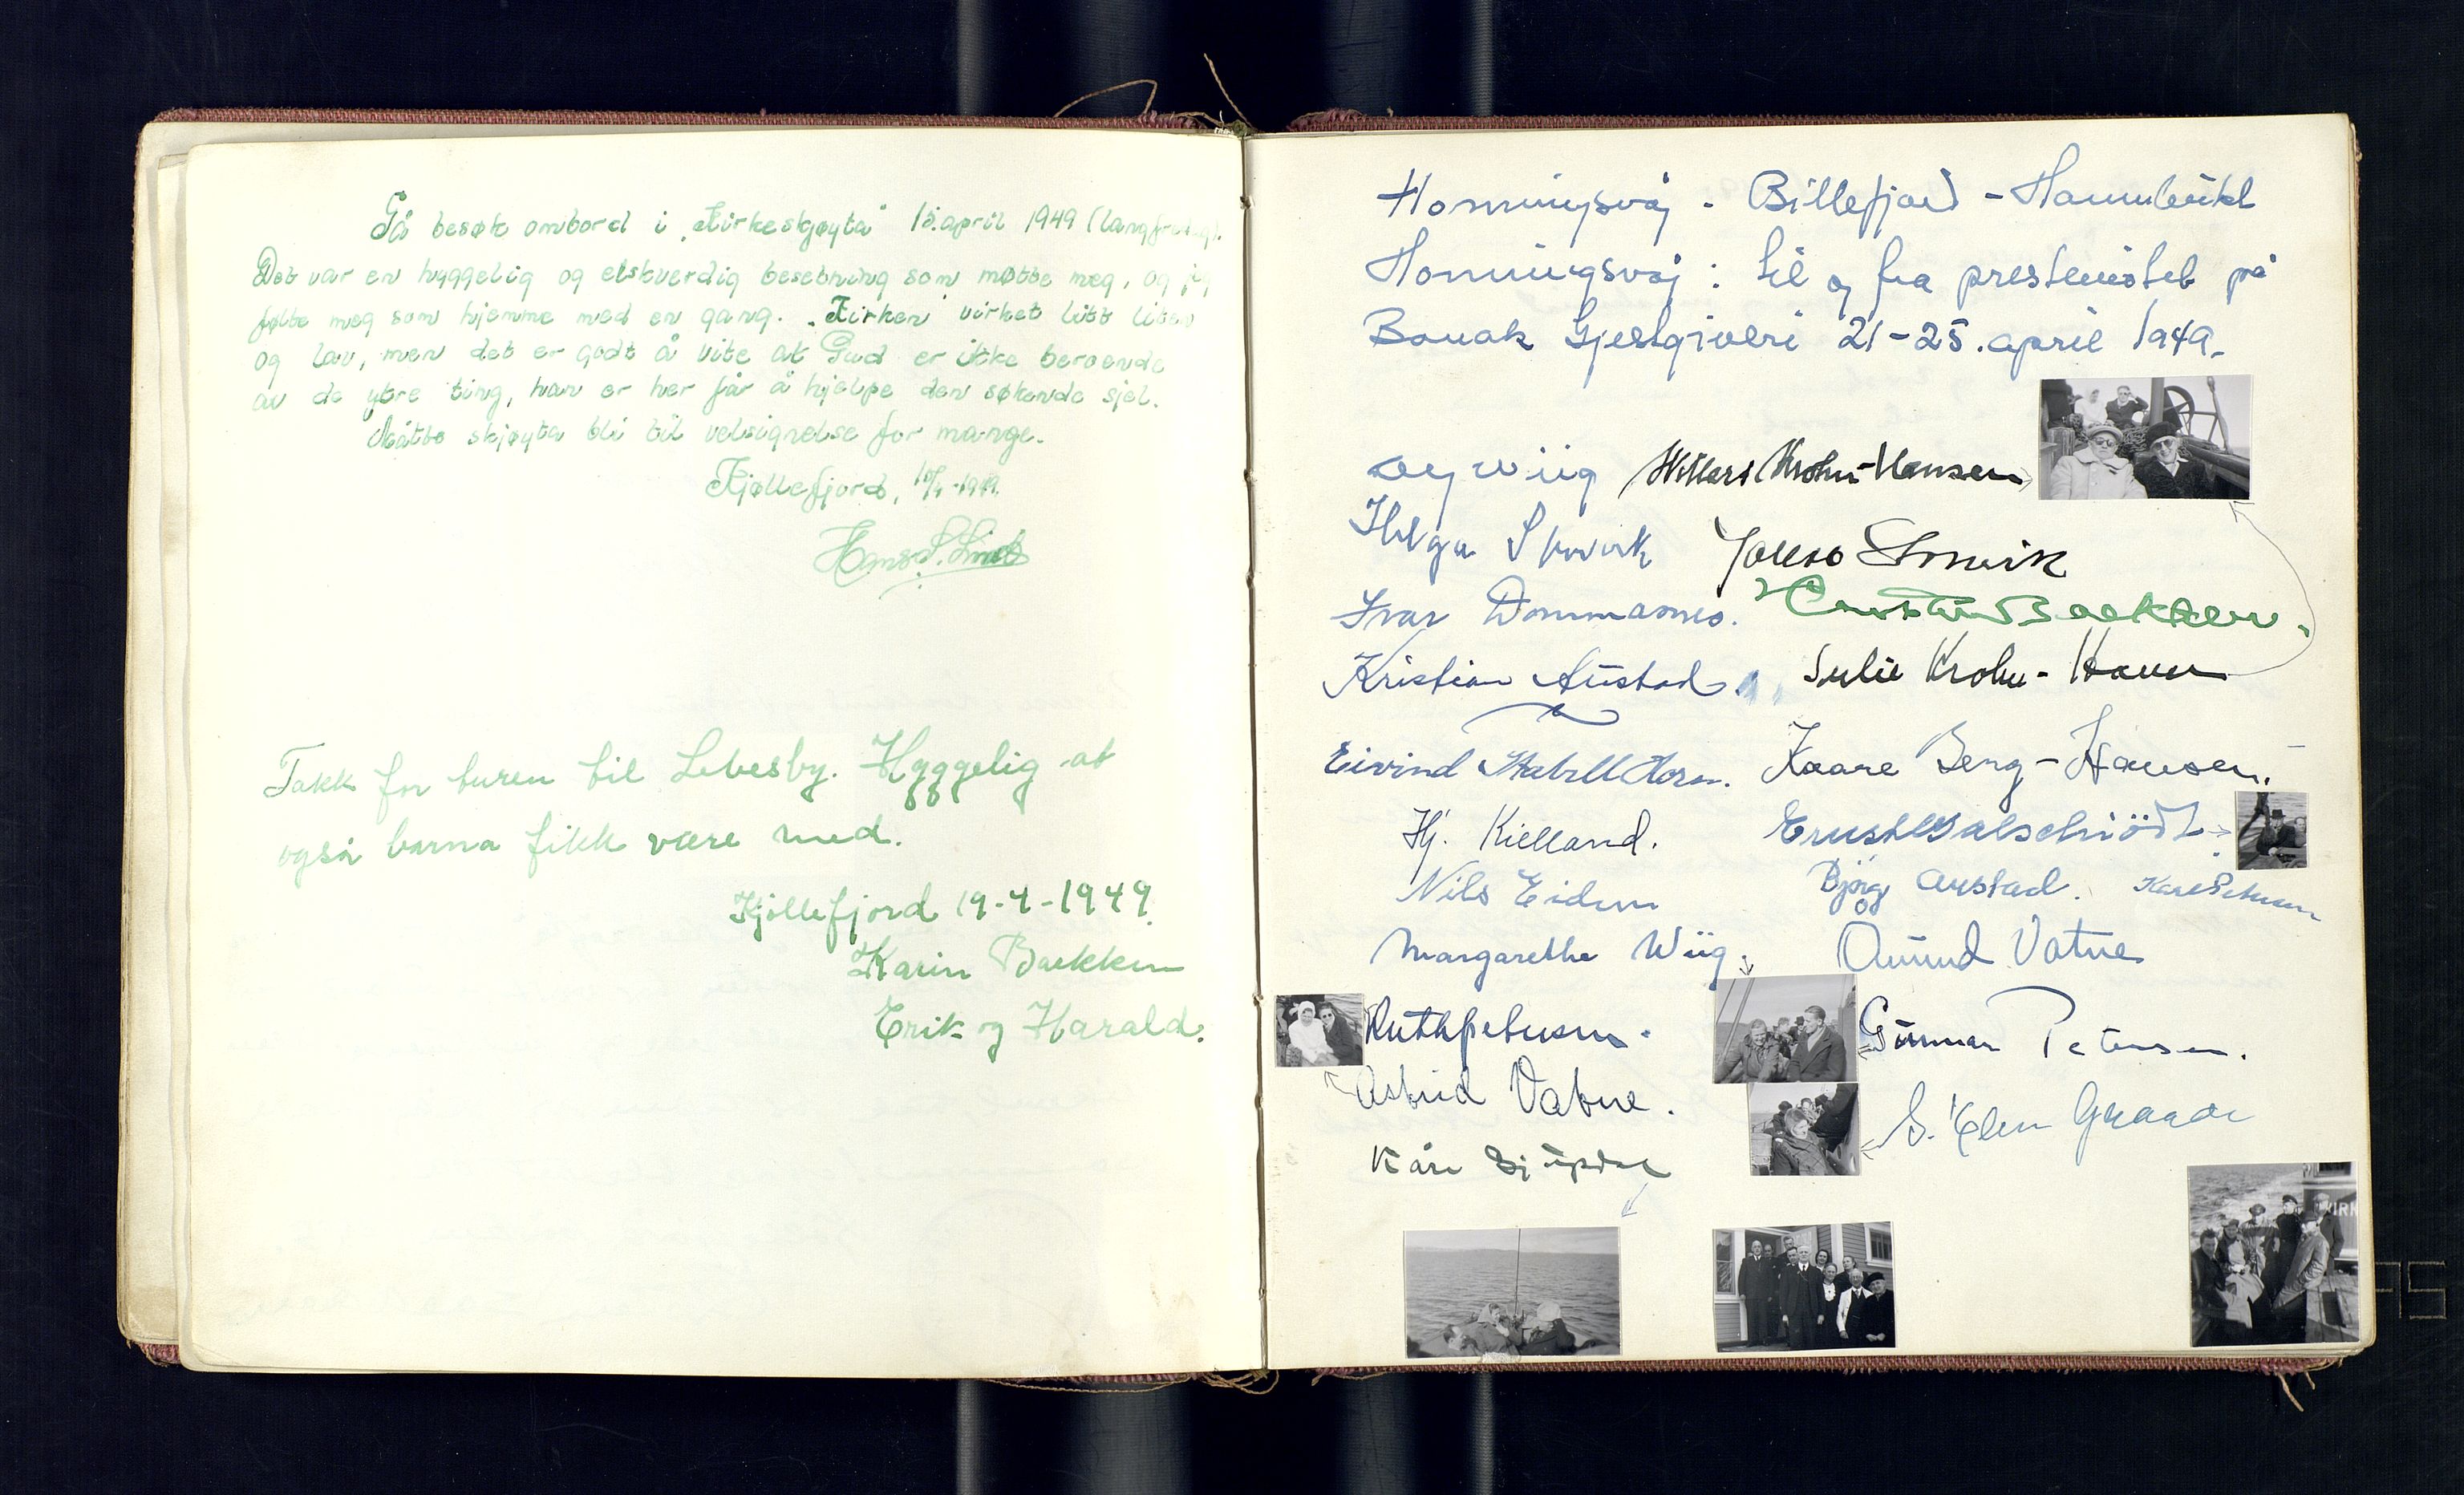 På besøk ombord i „Kirkeskjøyta" 15. april 1949 (langfredag).
Det var en hyggelig og elskverdig besetning som møtte meg, og jeg
følte meg som hjemme med en gang. „Kirken" virket litt liten
og lav, men det er godt å vite at Gud er ikke beroende
av de ytre ting, han er her får å hjelpe den søkende sjel.
Måtte skjøyta bli til velsignelse for mange.
Kjøllefjord, 1949.
Hans S.
Takk for turen til Lebesby. Hyggelig at
også barna fikk være med.
Kjøllefjord 19-4-1949.
Karin Baekken
Erik og Harald.
Honningsvåg - Billefjord - Hamnbukt
Honningsvåg: til og fra prestemötet på
Banak Gjestgiveri 21-25. april 1949.
Wiig Krohn-Hansen
Helga Storvik Storvik
Ivar Dommasnes. Baekken.
Kristian Austad. Julie Krohn-Hansen
Eivind Kaare Berg-Hansen.
Hj. Kielland. Ernst Walschiödt
Nils Eidem Björg Austad. Kare Petersen
Margarethe Wiig. Amund Vatne
Ruth Petersen. Gunnar Petersen.
Astrid Vatne. S. Ellen
Kåre
KIRK